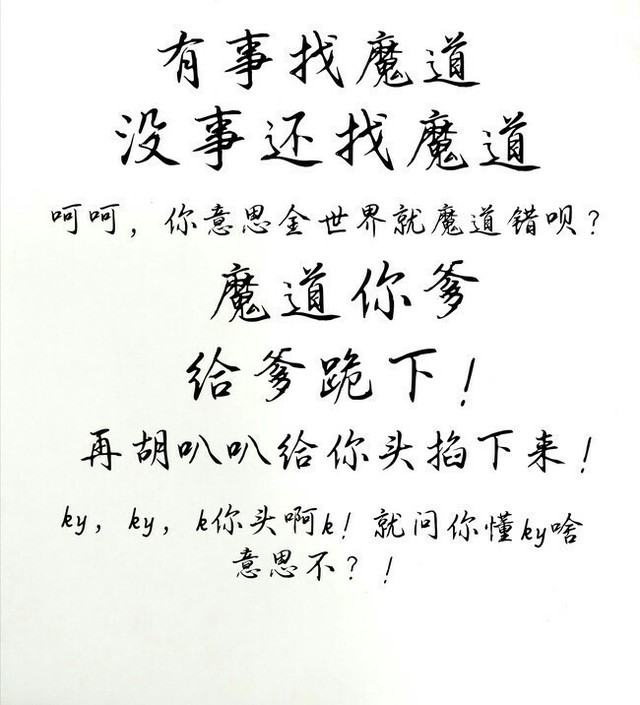 有事找魔道
没事还找魔道
呵呵，你意思全世界就魔道错呗？
魔道你爹
给爹跪下！
再胡叭叭给你头掐下来！
ky，ky，k你头啊k！就问你懂ky啥
意思不？！